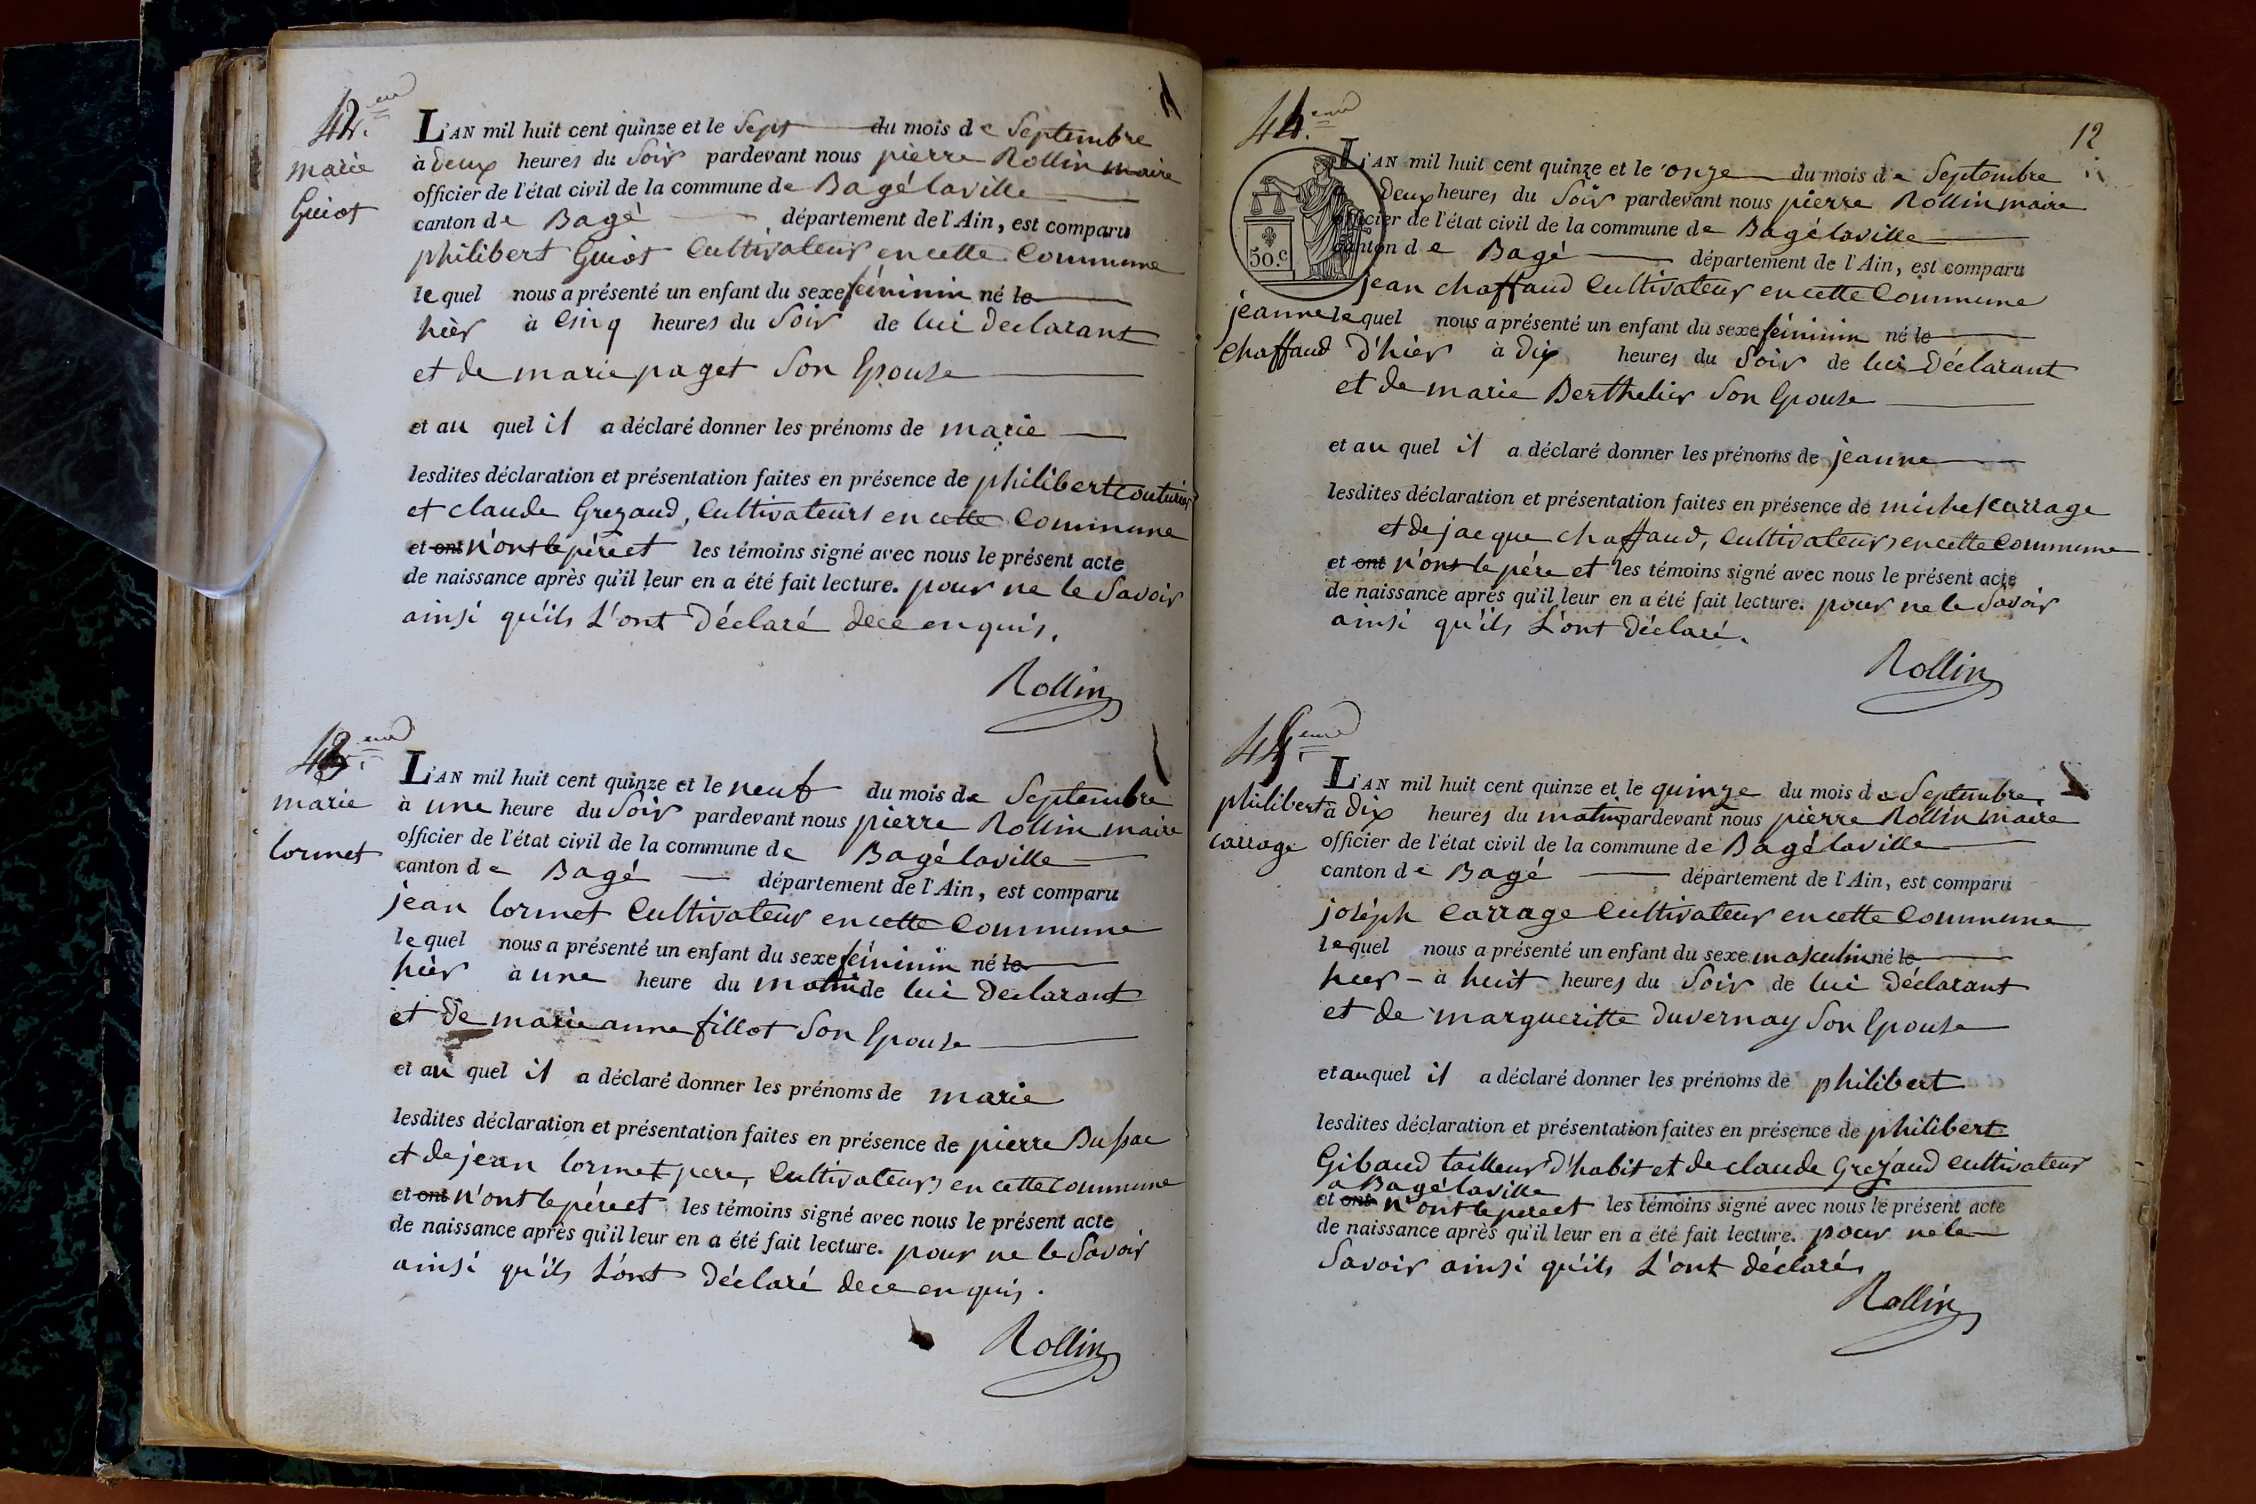 42.eme
marie
Guiot
L'AN mil huit cent quinze et le Sept du mois de Septembre
à deux heures du Soir pardevant nous pierre Rollin maire
officier de l'état civil de la commune de Bagélaville
canton de Bagé département de l'Ain, est comparu
philibert Guiot Cultivateur en cette Commune
lequel nous a présenté un enfant du sexe féminin né le
hièr à Cinq heures du Soir de lui déclarant
et de marie paget Son Epouse
et au quel il a déclaré donner les prénoms de marie
lesdites déclaration et présentation faites en présence de philibert couturier
et claude Grezaud, Cultivateurs en cette Commune
et ont n'ont le pére et les témoins signé avec nous le présent acte
de naissance après qu'il leur en a été fait lecture. pour ne le Savoir
ainsi qu'ils L'ont Déclaré de ce enquis.
Rollin
43.eme
marie
lormet
L'AN mil huit cent quinze et le neuf du mois de Septembre
à une heure du Soir pardevant nous pierre Rollin maire
officier de l'état civil de la commune de Bagélaville
canton de Bagé département de l'Ain, est comparu
jean lormet Cultivateur en cette Commune
lequel nous a présenté un enfant du sexe féminin né le
hièr à une heure du matin de lui Déclarant
et de marie anne fillot Son Epouse
et au quel il a déclaré donner les prénoms de marie
lesdites déclaration et présentation faites en présence de pierre Bussac
et de jean lormet pere, Cultivateurs en cette Commune
et ont n'ont le pére et les témoins signé avec nous le présent acte
de naissance après qu'il leur en a été fait lecture. pour ne le Savoir
ainsi qu'ils L'ont Déclaré de ce enquis.
Rollin
12
44.eme
50.c
jeanne
chaffaud
L'AN mil huit cent quinze et le onze du mois de Septembre
à Deux heures du Soir pardevant nous pierre Rollin maire
officier de l'état civil de la commune de Bagélaville
canton de Bagé département de l'Ain, est comparu
jean chaffaud Cultivateur en cette Commune
lequel nous a présenté un enfant du sexe féminin né le
d'hier à Dix heures du Soir de lui Déclarant
et de marie Berthelier Son Epouse
et au quel il a déclaré donner les prénoms de jeanne
lesdites déclaration et présentation faites en présence de michel carrage
et de jacque chaffaud, Cultivateurs en cette Commune
et ont n'ont le pére et les témoins signé avec nous le présent acte
de naissance après qu'il leur en a été fait lecture. pour ne le Savoir
ainsi qu'ils L'ont Déclaré.
Rollin
45.eme
philibert
carrage
L'AN mil huit cent quinze et le quinze du mois de Septembre
à Dix heures du matin pardevant nous pierre Rollin maire
officier de l'état civil de la commune de Bagélaville
canton de Bagé département de l'Ain, est comparu
joséph Carrage Cultivateur en cette Commune
lequel nous a présenté un enfant du sexe masculin né le
hier à huit heures du Soir de lui Déclarant
et de margueritte Duvernay Son Epouse
et au quel il a déclaré donner les prénoms de philibert
lesdites déclaration et présentation faites en présence de philibert
Gibaud tailleur d'habit et de claude Grezaud cultivateur
a Bagélaville
et ont n'ont le pere et les témoins signé avec nous le présent acte
de naissance après qu'il leur en a été fait lecture. pour ne le
Savoir ainsi qu'ils L'ont déclaré
Rollin